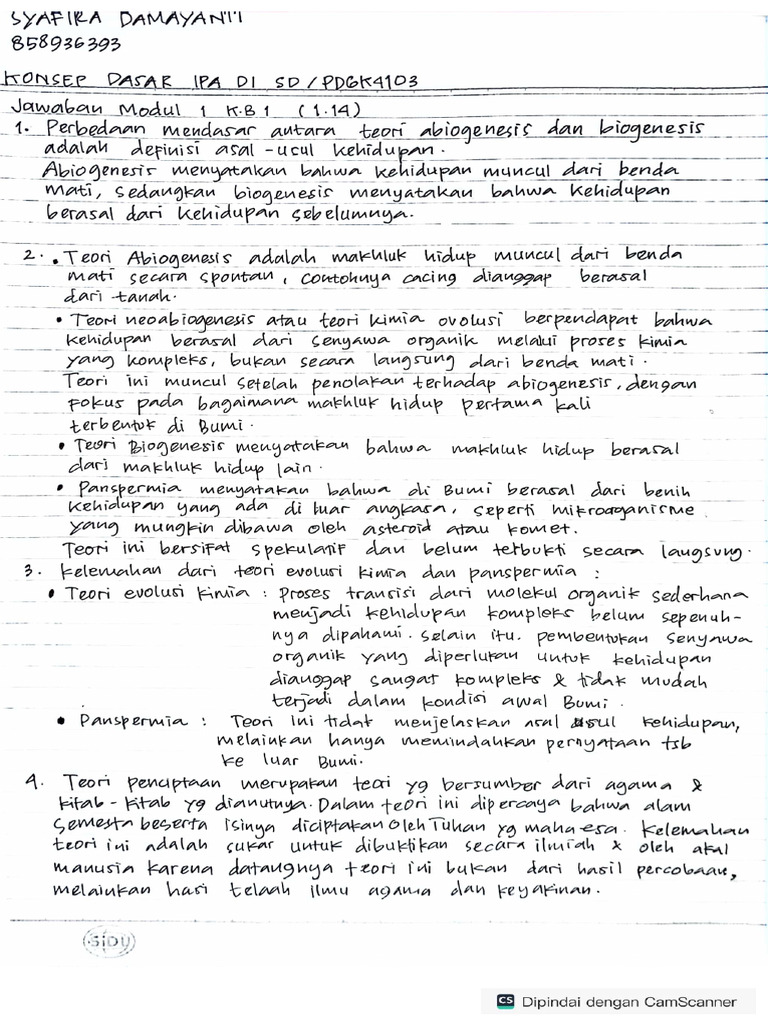 SYAFIRA DAMAYANTI
858936393
KONSEP DASAR IPA DI SD/PDGK4103
Jawaban Modul 1 K.B 1 (1.14)
1. Perbedaan mendasar antara teori abiogenesis dan biogenesis
adalah definisi asal-usul kehidupan.
Abiogenesis menyatakan bahwa kehidupan muncul dari benda
mati, sedangkan biogenesis menyatakan bahwa kehidupan
berasal dari kehidupan sebelumnya.
2. • Teori Abiogenesis adalah makhluk hidup muncul dari benda
mati secara spontan, contohnya cacing dianggap berasal
dari tanah.
• Teori neoabiogenesis atau teori kimia ovolusi berpendapat bahwa
kehidupan berasal dari senyawa organik melalui proses kimia
yang kompleks, bukan secara langsung dari benda mati.
Teori ini muncul setelah penolakan terhadap abiogenesis, dengan
fokus pada bagaimana makhluk hidup pertama kali
terbentuk di Bumi.
• Teori Biogenesis menyatakan bahwa makhluk hidup berasal
dari makhluk hidup lain.
• Panspermia menyatakan bahwa di Bumi berasal dari benih
kehidupan yang ada di luar angkasa, seperti mikroorganisme
yang mungkin dibawa oleh asteroid atau komet.
Teori ini bersifat spekulatif dan belum terbukti secara langsung.
3. Kelemahan dari teori evolusi kimia dan panspermia :
• Teori evolusi kimia : Proses transisi dari molekul organik sederhana
menjadi kehidupan kompleks belum sepenuh-
nya dipahami. selain itu. pembentukan senyawa
organik yang diperlukan untuk kehidupan
dianggap sangat kompleks & tidak mudah
terjadi dalam kondisi awal Bumi.
• Panspermia : Teori ini tidak menjelaskan asal usul kehidupan,
melainkan hanya memindahkan pernyataan tsb
ke luar Bumi.
4. Teori penciptaan merupakan teori yg bersumber dari agama &
kitab-kitab yg dianutnya. Dalam teori ini dipercaya bahwa alam
semesta beserta isinya diciptakan oleh Tuhan yg maha esa. Kelemahan
teori ini adalah sukar untuk dibuktikan secara ilmiah & oleh akal
manusia karena datangnya teori ini bukan dari hasil percobaan,
melainkan hasi telaah ilmu agama dan keyakinan.
SiDU
CS Dipindai dengan CamScanner